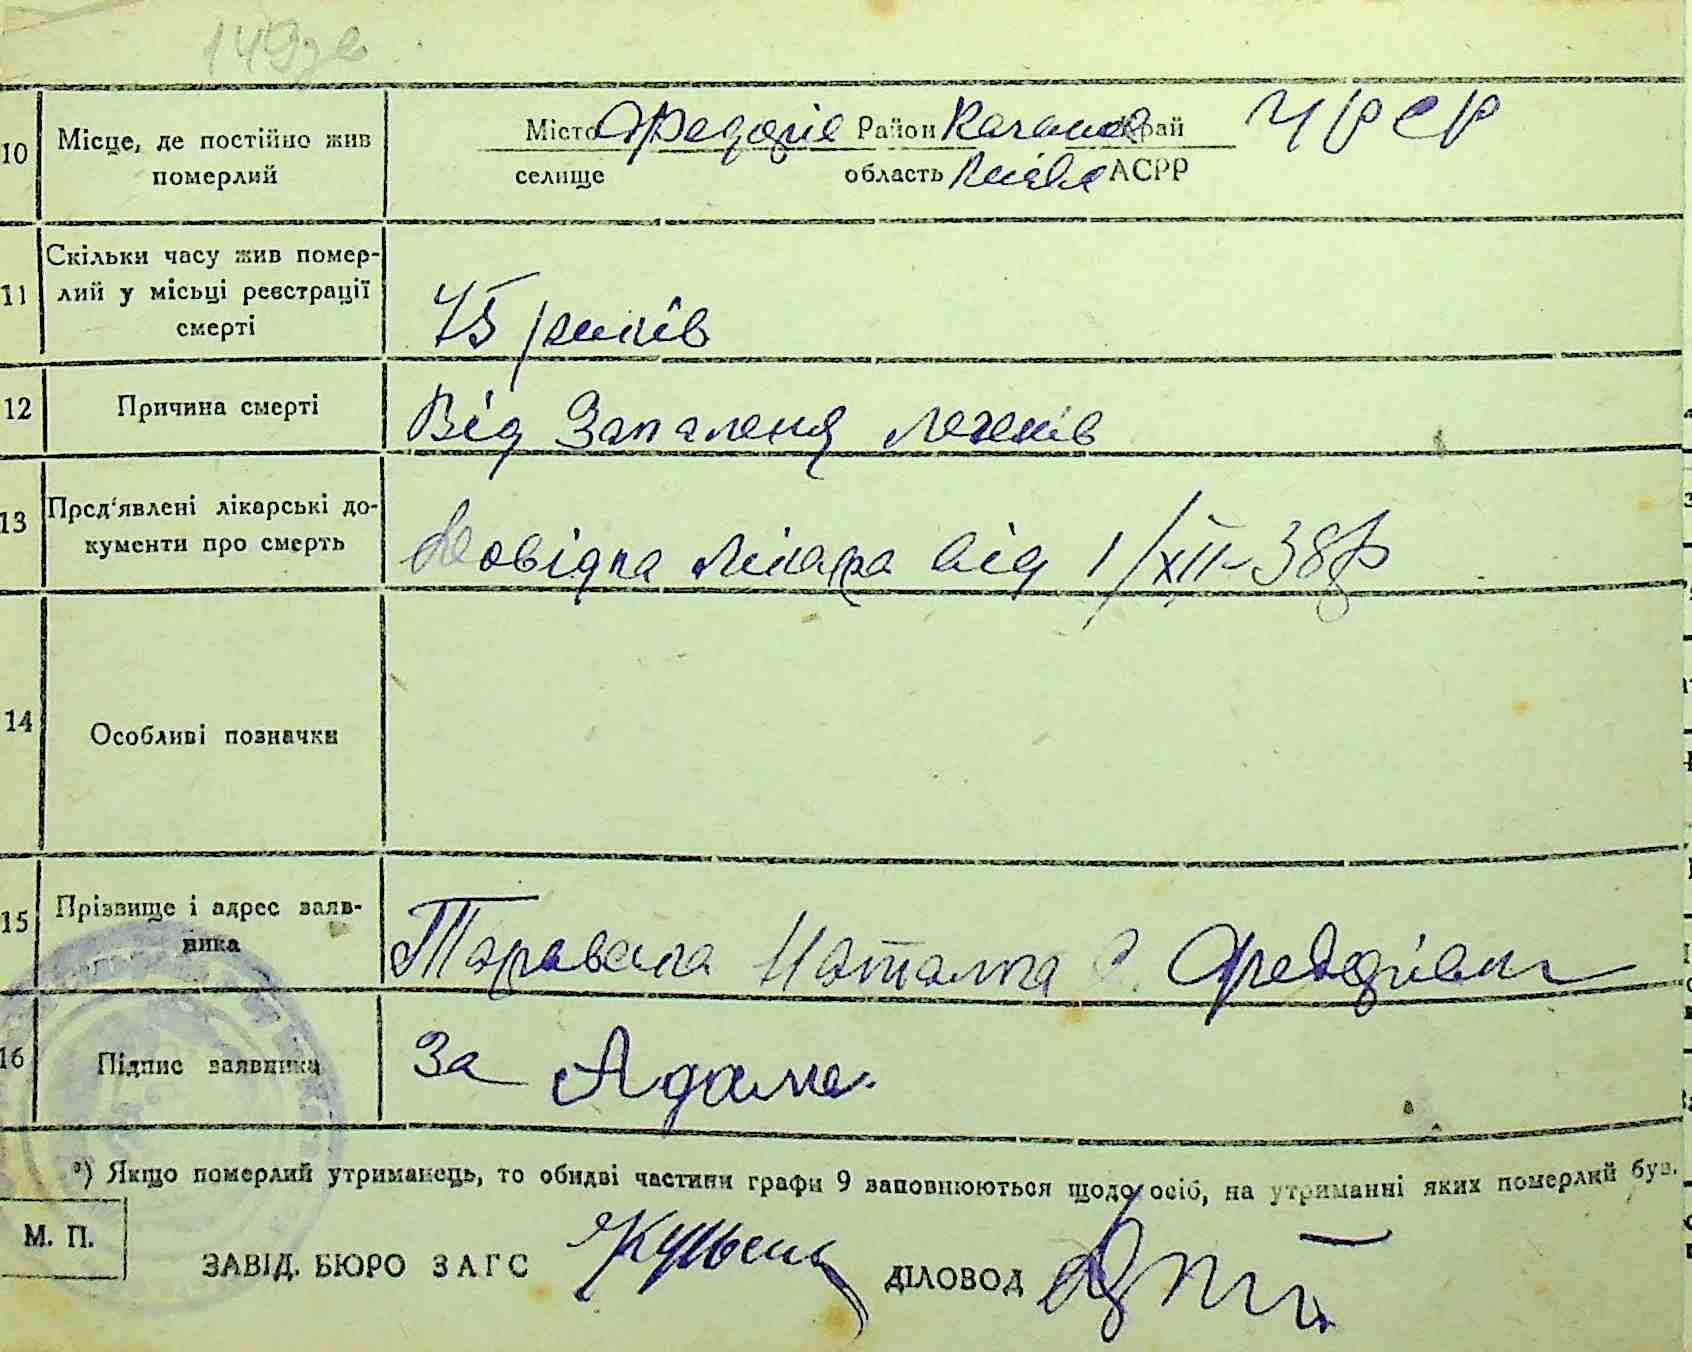 149
10 Місце, де постійно жив померлий
Місто Район край УРСР
селище область АСРР
11 Скільки часу жив помер-
лий у місьці реєстрації
смерті
75 років
12 Причина смерті Від Запаленя легенів
13 Пред'явлені лікарські до-
кументи про смерть
Довідка лікара від 1/XII-38р
14 Особливі позначки
15 Прізвище і адрес заяв-
ника
Наталка с.
16 Підпис заявника За Адаме
*) Якщо померлий утриманець, то обидві частини графи 9 заповнюються щодо осіб, на утриманні яких померлий був.
М. П.
ЗАВІД. БЮРО ЗАГС ДІЛОВОД